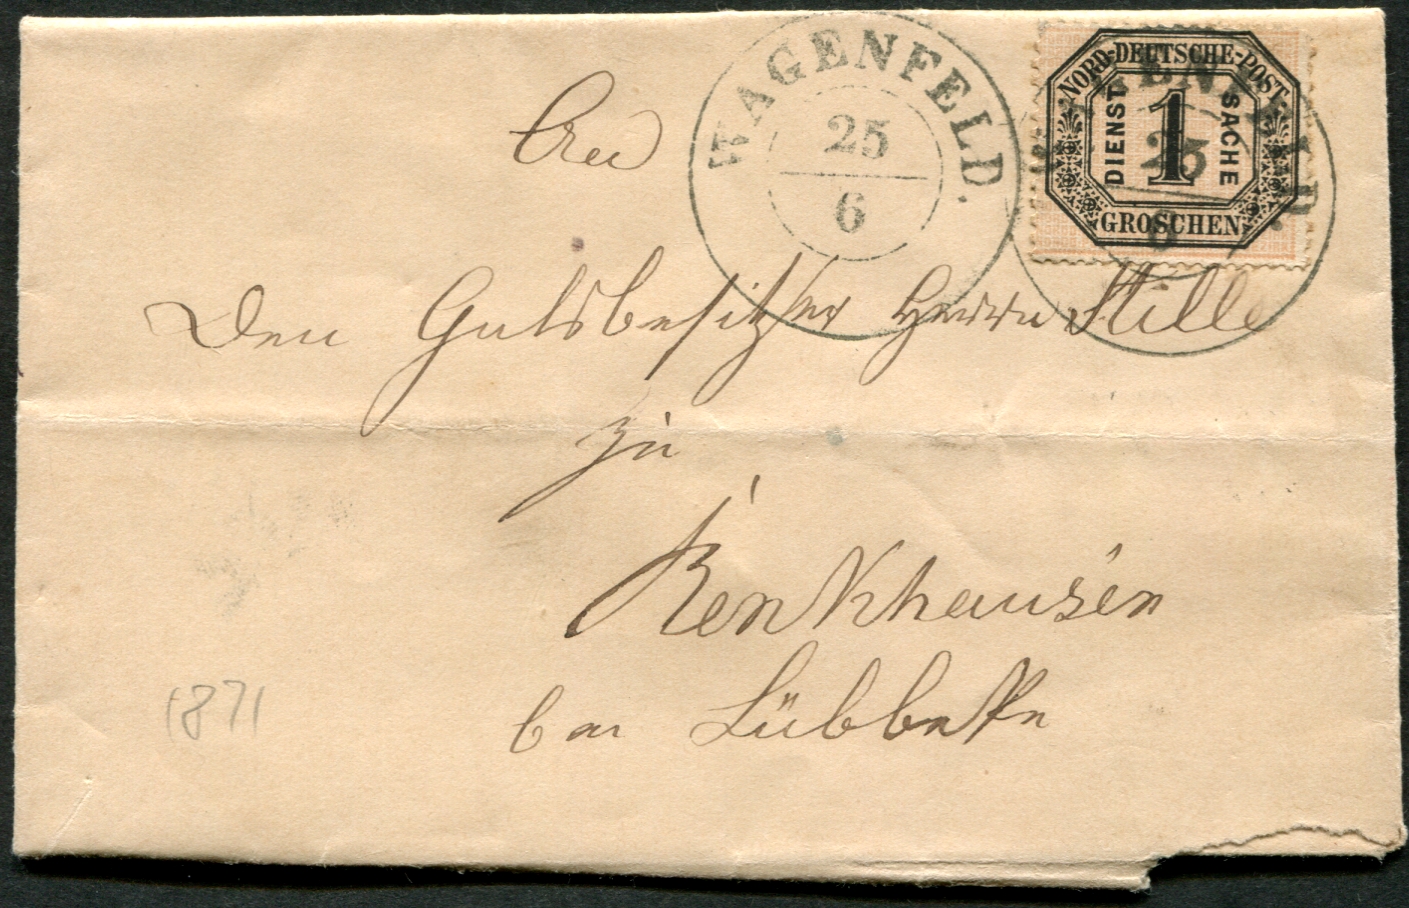 WAGENFELD.
25
6
NORD-DEUTSCHE-POST
DIENST
1
SACHE
GROSCHEN
WAGENFELD.
25
6
An
Den Gutsbesitzer Herrn Stille
zu
Renkhausen
bei Lübbeke
1871